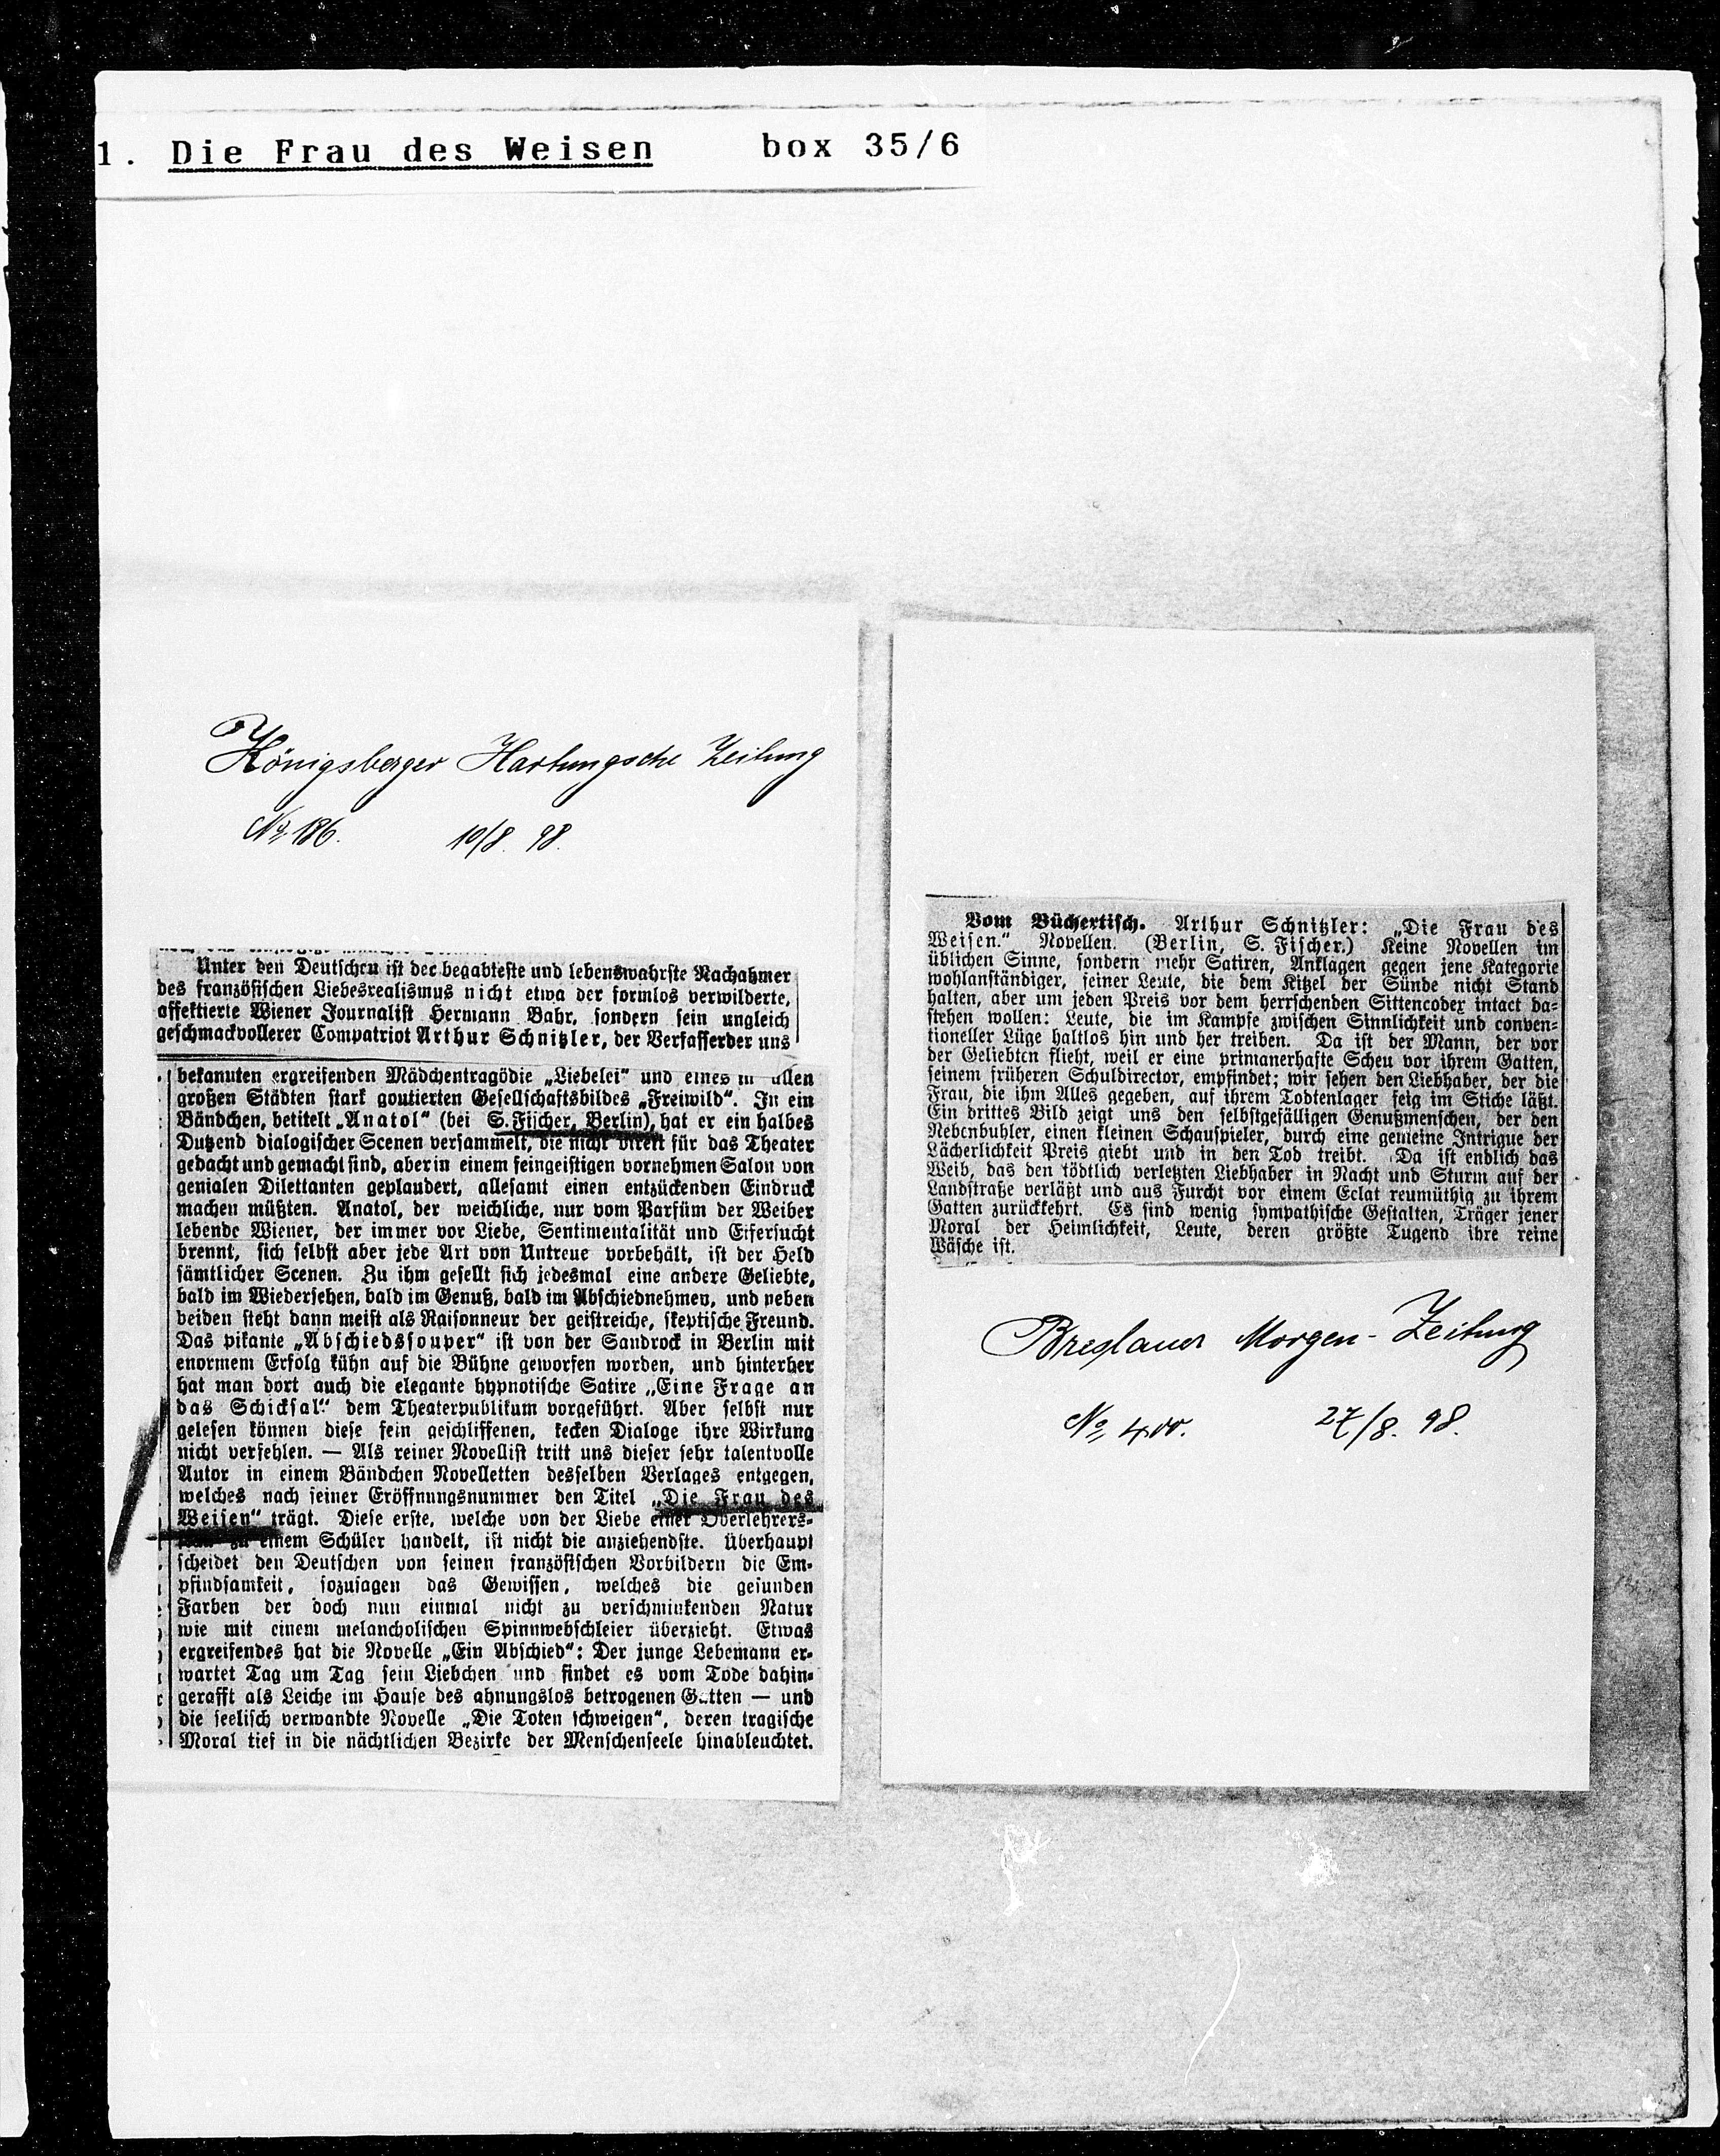 1. Die Frau des Weisen box 35/6
Königsberger Hartungsche Zeitung
No. 186. 10/8. 98.
Unter den Deutschen ist der begabteste und lebenswahrste Nachahmer
des französischen Liebesrealismus nicht etwa der formlos verwilderte,
affektierte Wiener Journalist Hermann Bahr, sondern sein ungleich
geschmackvollerer Compatriot Arthur Schnitzler, der Verfasser der uns
bekannten ergreifenden Mädchentragödie „Liebelei“ und eines in allen
großen Städten stark goutierten Gesellschaftsbildes „Freiwild“. In ein
Bändchen, betitelt „Anatol“ (bei S. Fischer, Berlin), hat er ein halbes
Dutzend dialogischer Scenen versammelt, die nicht direkt für das Theater
gedacht und gemacht sind, aber in einem feingeistigen vornehmen Salon von
genialen Dilettanten geplaudert, allesamt einen entzückenden Eindruck
machen müßten. Anatol, der weichliche, nur vom Parfüm der Weiber
lebende Wiener, der immer vor Liebe, Sentimentalität und Eifersucht
brennt, sich selbst aber jede Art von Untreue vorbehält, ist der Held
sämtlicher Scenen. Zu ihm gesellt sich jedesmal eine andere Geliebte,
bald im Wiedersehen, bald im Genuß, bald im Abschiednehmen, und neben
beiden steht dann meist als Raisonneur der geistreiche, skeptische Freund.
Das pikante „Abschiedssouper“ ist von der Sandrock in Berlin mit
enormem Erfolg kühn auf die Bühne geworfen worden, und hinterher
hat man dort auch die elegante hypnotische Satire „Eine Frage an
das Schicksal“ dem Theaterpublikum vorgeführt. Aber selbst nur
gelesen können diese fein geschliffenen, kecken Dialoge ihre Wirkung
nicht verfehlen. — Als reiner Novellist tritt uns dieser sehr talentvolle
Autor in einem Bändchen Novelletten desselben Verlages entgegen,
welches nach seiner Eröffnungsnummer den Titel „Die Frau des
Weisen“ trägt. Diese erste, welche von der Liebe einer Oberlehrers-
zu einem Schüler handelt, ist nicht die anziehendste. Überhaupt
scheidet den Deutschen von seinen französischen Vorbildern die Em-
pfindsamkeit, sozusagen das Gewissen, welches die gesunden
Farben der doch nun einmal nicht zu verschminkenden Natur
wie mit einem melancholischen Spinnwebschleier überzieht. Etwas
ergreifendes hat die Novelle „Ein Abschied“: Der junge Lebemann er-
wartet Tag um Tag sein Liebchen und findet es vom Tode dahin-
gerafft als Leiche im Hause des ahnungslos betrogenen Gatten — und
die seelisch verwandte Novelle „Die Toten schweigen“, deren tragische
Moral tief in die nächtlichen Bezirke der Menschenseele hinableuchtet.
Vom Büchertisch. Arthur Schnitzler: „Die Frau des
Weisen.“ Novellen. (Berlin, S. Fischer.) Keine Novellen im
üblichen Sinne, sondern mehr Satiren, Anklagen gegen jene Kategorie
wohlanständiger, feiner Leute, die dem Kitzel der Sünde nicht Stand
halten, aber um jeden Preis vor dem herrschenden Sittencodex intact da-
stehen wollen: Leute, die im Kampfe zwischen Sinnlichkeit und conven-
tioneller Lüge haltlos hin und her treiben. Da ist der Mann, der vor
der Geliebten flieht, weil er eine primanerhafte Scheu vor ihrem Gatten,
seinem früheren Schuldirector, empfindet; wir sehen den Liebhaber, der die
Frau, die ihm Alles gegeben, auf ihrem Todtenlager feig im Stiche läßt.
Ein drittes Bild zeigt uns den selbstgefälligen Genußmenschen, der den
Nebenbuhler, einen kleinen Schauspieler, durch eine gemeine Intrigue der
Lächerlichkeit Preis giebt und in den Tod treibt. Da ist endlich das
Weib, das den tödtlich verletzten Liebhaber in Nacht und Sturm auf der
Landstraße verläßt und aus Furcht vor einem Eclat reumüthig zu ihrem
Gatten zurückkehrt. Es sind wenig sympathische Gestalten, Träger jener
Moral der Heimlichkeit, Leute, deren größte Tugend ihre reine
Wäsche ist.
Breslauer Morgen-Zeitung
No. 400. 27/8. 98.